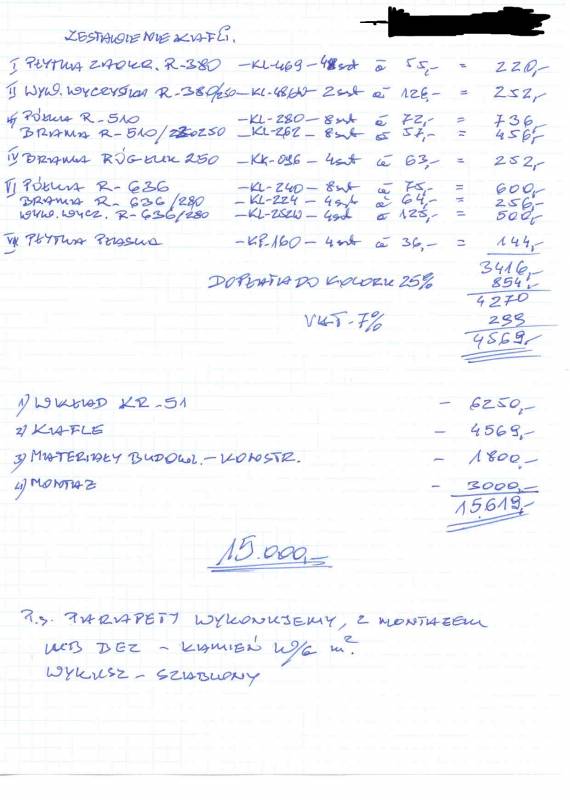 ZESTAWIENIE KAFLI.
I PŁYTKA ZAOKR. R-380 - KL-469 - 4szt á 55,- = 220,-
II WYW. WYCZYSTKA R-380/250 - KL- 2szt á 126,- = 252,-
PÓŁKA R-510 - KL-280 - 8szt á 72,- = 736,-
BRAMA R-510/250 - KL-262 - 8szt á 57,- = 456,-
IV BRAMA RÓG ŁUK 250 - KK-096 - 4szt á 63,- = 252,-
VI PÓŁKA R-636 - KL-240 - 8szt á 75,- = 600,-
BRAMA R-636/280 - KL-224 - 4szt á 64,- = 256,-
WYW. WYCZ. R-636/280 - 4szt á 125,- = 500,-
PŁYTKA PŁASKA - KP-160 - 4szt á 36,- = 144,-
3416,-
DOPŁATA DO KOLORU 25% 854,-
4270
VAT-7% 299
4569,-
1) WKŁAD KR-51 - 6250,-
2) KAFLE - 4569,-
3) MATERIAŁY BUDOWL. - KONSTR. - 1800,-
4) MONTAŻ - 3000,-
15619,-
15.000,-
P.s. PARAPETY WYKONUJEMY, Z MONTAŻEM
LUB BEZ - KAMIEŃ W/G m².
WYKUSZ - SZABLONY